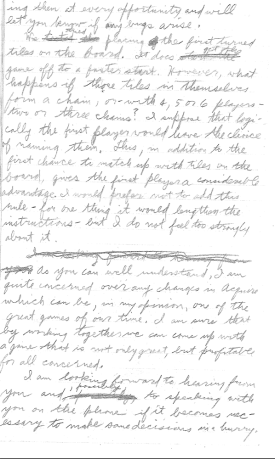 ing them at every opportunity and will
let you know if any bugs arise.
placing of the first turned
tiles on the board. It does get the
game off to a faster start. However, what
happens if those tiles in themselves
form a chain, or with 4, 5 or 6 players -
two or three chains? I suppose that logi-
cally the first player would have the choice
of naming them. This, in addition to the
first chance to match up with tiles on the
board, gives the first player a considerable
advantage. I would prefer not to add this
rule - for one thing it would lengthen the
instructions - but I do not feel too strongly
about it.
As you can well understand, I am
quite concerned over any changes in Acquire
which can be, in my opinion, one of the
great games of our time. I am sure that
by working together we can come up with
a game that is not only great, but profitable
for all concerned.
I am looking forward to hearing from
you and, possibly, to speaking with
you on the phone if it becomes nec-
essary to make some decisions in a hurry.